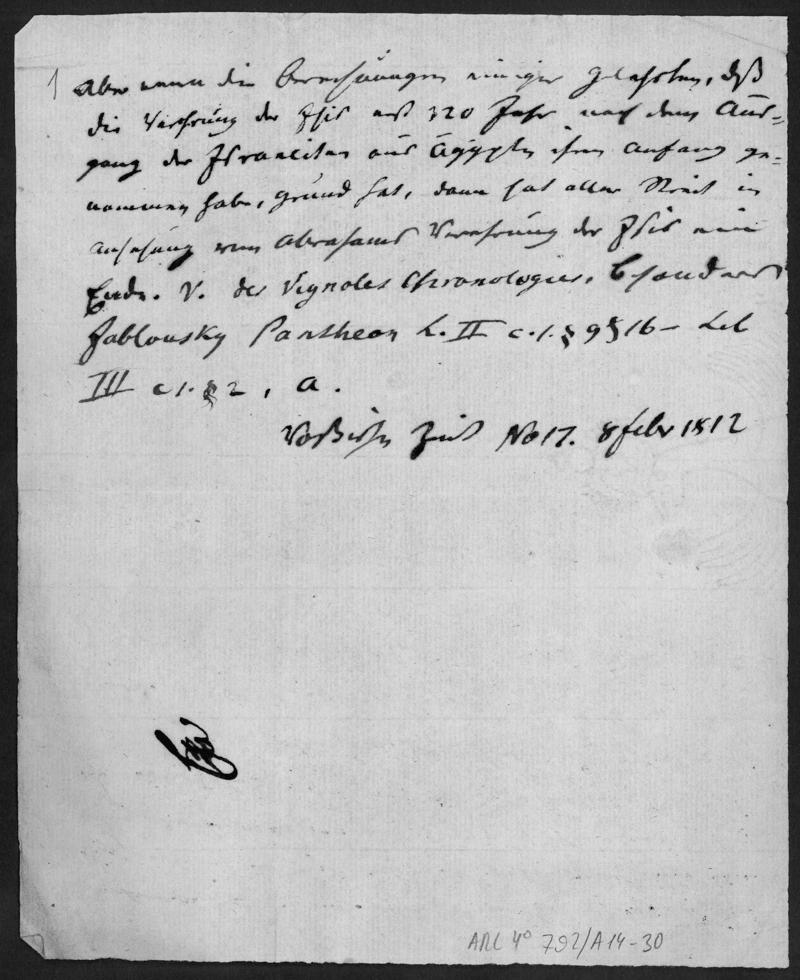 1 Aber wenn die Berechnungen einiger Gelehrten, daß
die Verehrung der Isis erst 320 Jahr nach dem Aus-
gang der Israeliten aus Ägypten ihren Anfang ge-
nommen habe, Grund hat, dann hat aller Streit in
Ansehung von Abrahams Verehrung der Isis ein
Ende. V. des Vignoles Chronologie, besonders
Jablonsky Pantheon L. II c. 1. § 9 § 16 – Lib
III c 1. § 2, a.
Vossische Zeit No 17. 8 Febr 1812
ARC 4° 792/A14-30